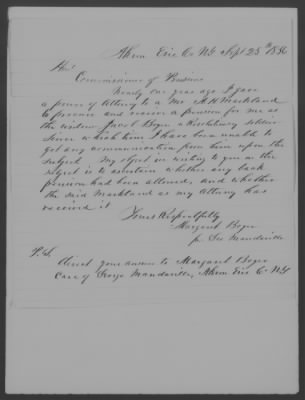 Akron Erie Co N.Y. Sept 25th 1856
Hon
Commissioner of Pensions
Nearly one year ago I gave
a power of Attorny to a Mr A H Markland
to procure and recover a pension for me as
the widow Jacob Boyer a Revolutionary soldier
Since which time I have been unable to
get any communication from him upon the
subject My object in writing to you on the
subject is to ascertain whether any back
pension had been allowed, and whether
the said Markland as my Attorny has
received it
Yours Respectfully
Margaret Boyer
Geo Mandaville
P.S.
direct your answer to Margaret Boyer
Care of George Mandaville, Akron Erie Co N.Y